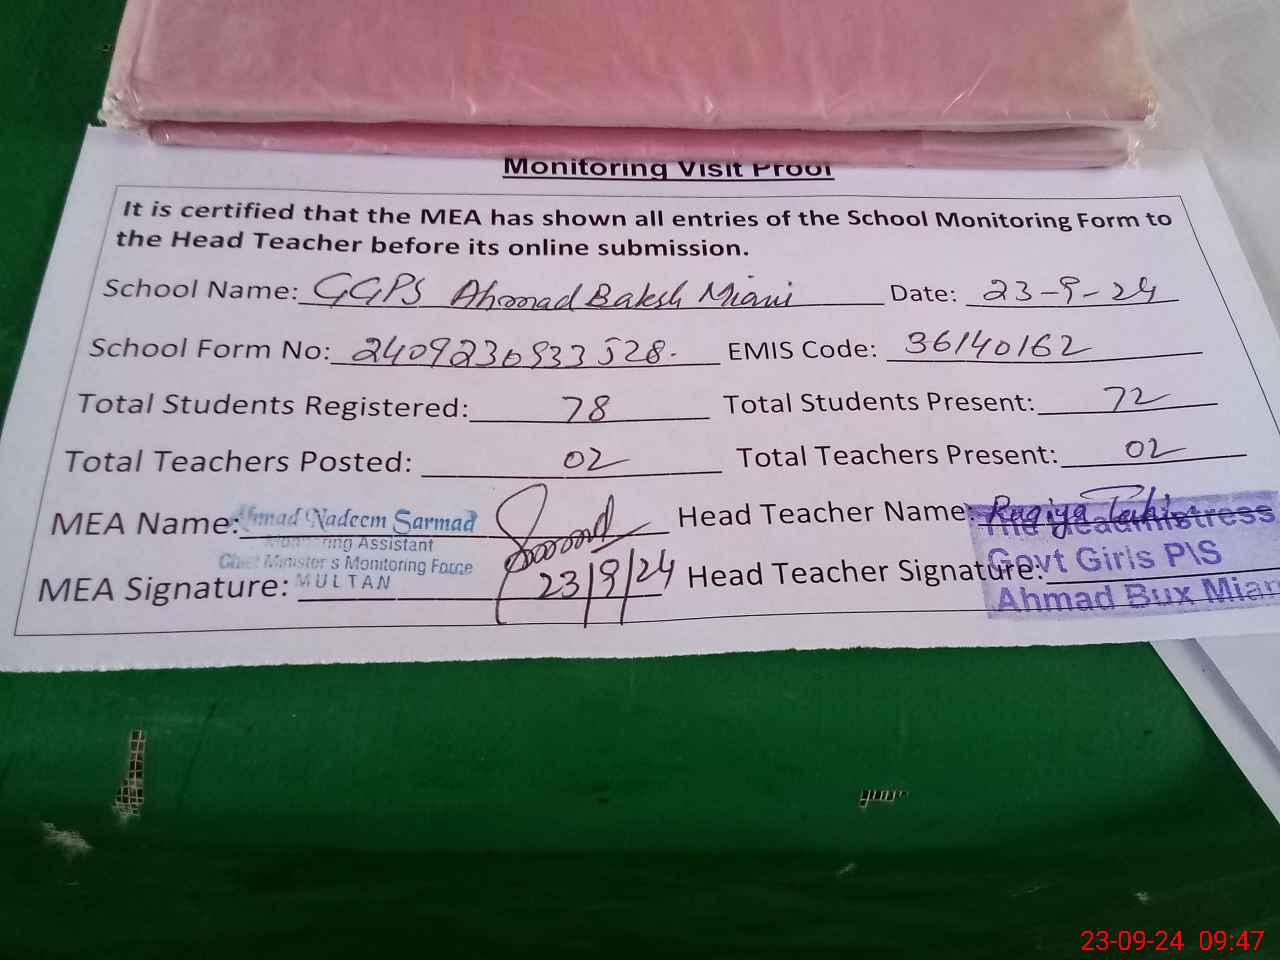 Monitoring Visit Proof
It is certified that the MEA has shown all entries of the School Monitoring Form to
the Head Teacher before its online submission.
School Name: GGPS Ahmad Baksh Miani Date: 23-9-24
School Form No: 2409230933528. EMIS Code: 36140162
Total Students Registered: 78 Total Students Present: 72
Total Teachers Posted: 02 Total Teachers Present: 02
MEA Name: Ahmad Nadeem Sarmad Head Teacher Name: Ruqiya
Monitoring Assistant The Headmistress
Chief Minister's Monitoring Force Govt Girls P/S
MEA Signature: MULTAN 23/9/24 Head Teacher Signature:
Ahmad Bux Mian
23-09-24 09:47